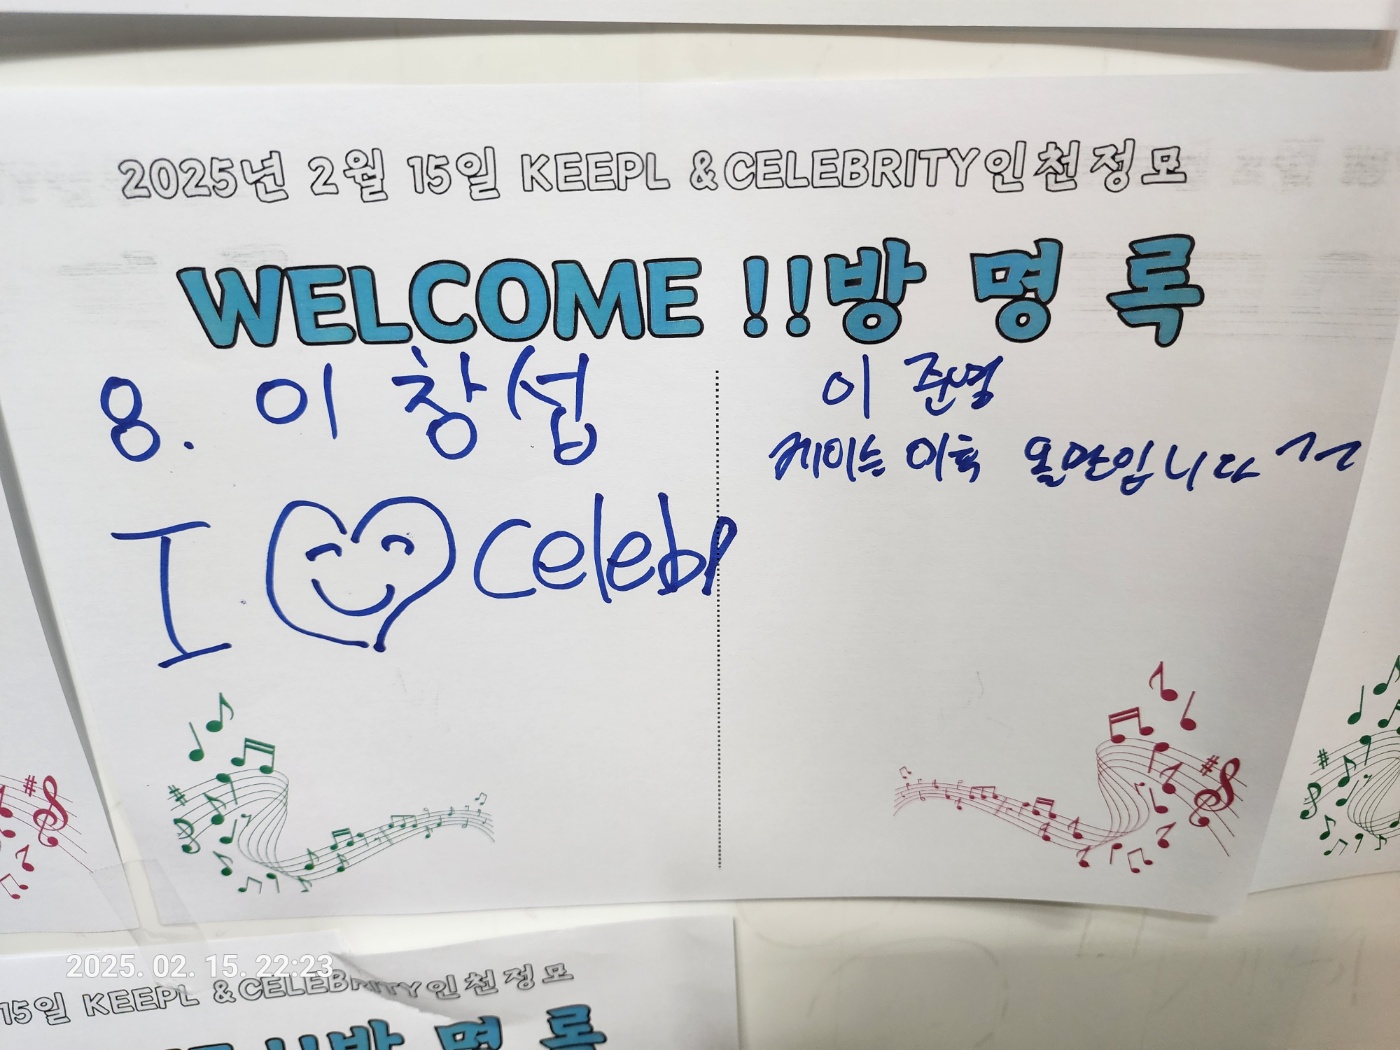 2025년 2월 15일 KEEPL &CELEBRITY인천정모
WELCOME !!방 명 록
8. 이 창섭
I celebr
이 준영
케이는 이 온만입니다 ^^
2025. 02. 15. 22:23
15일 KEEPL &CELEBRITY인천정모
!!방 명 록